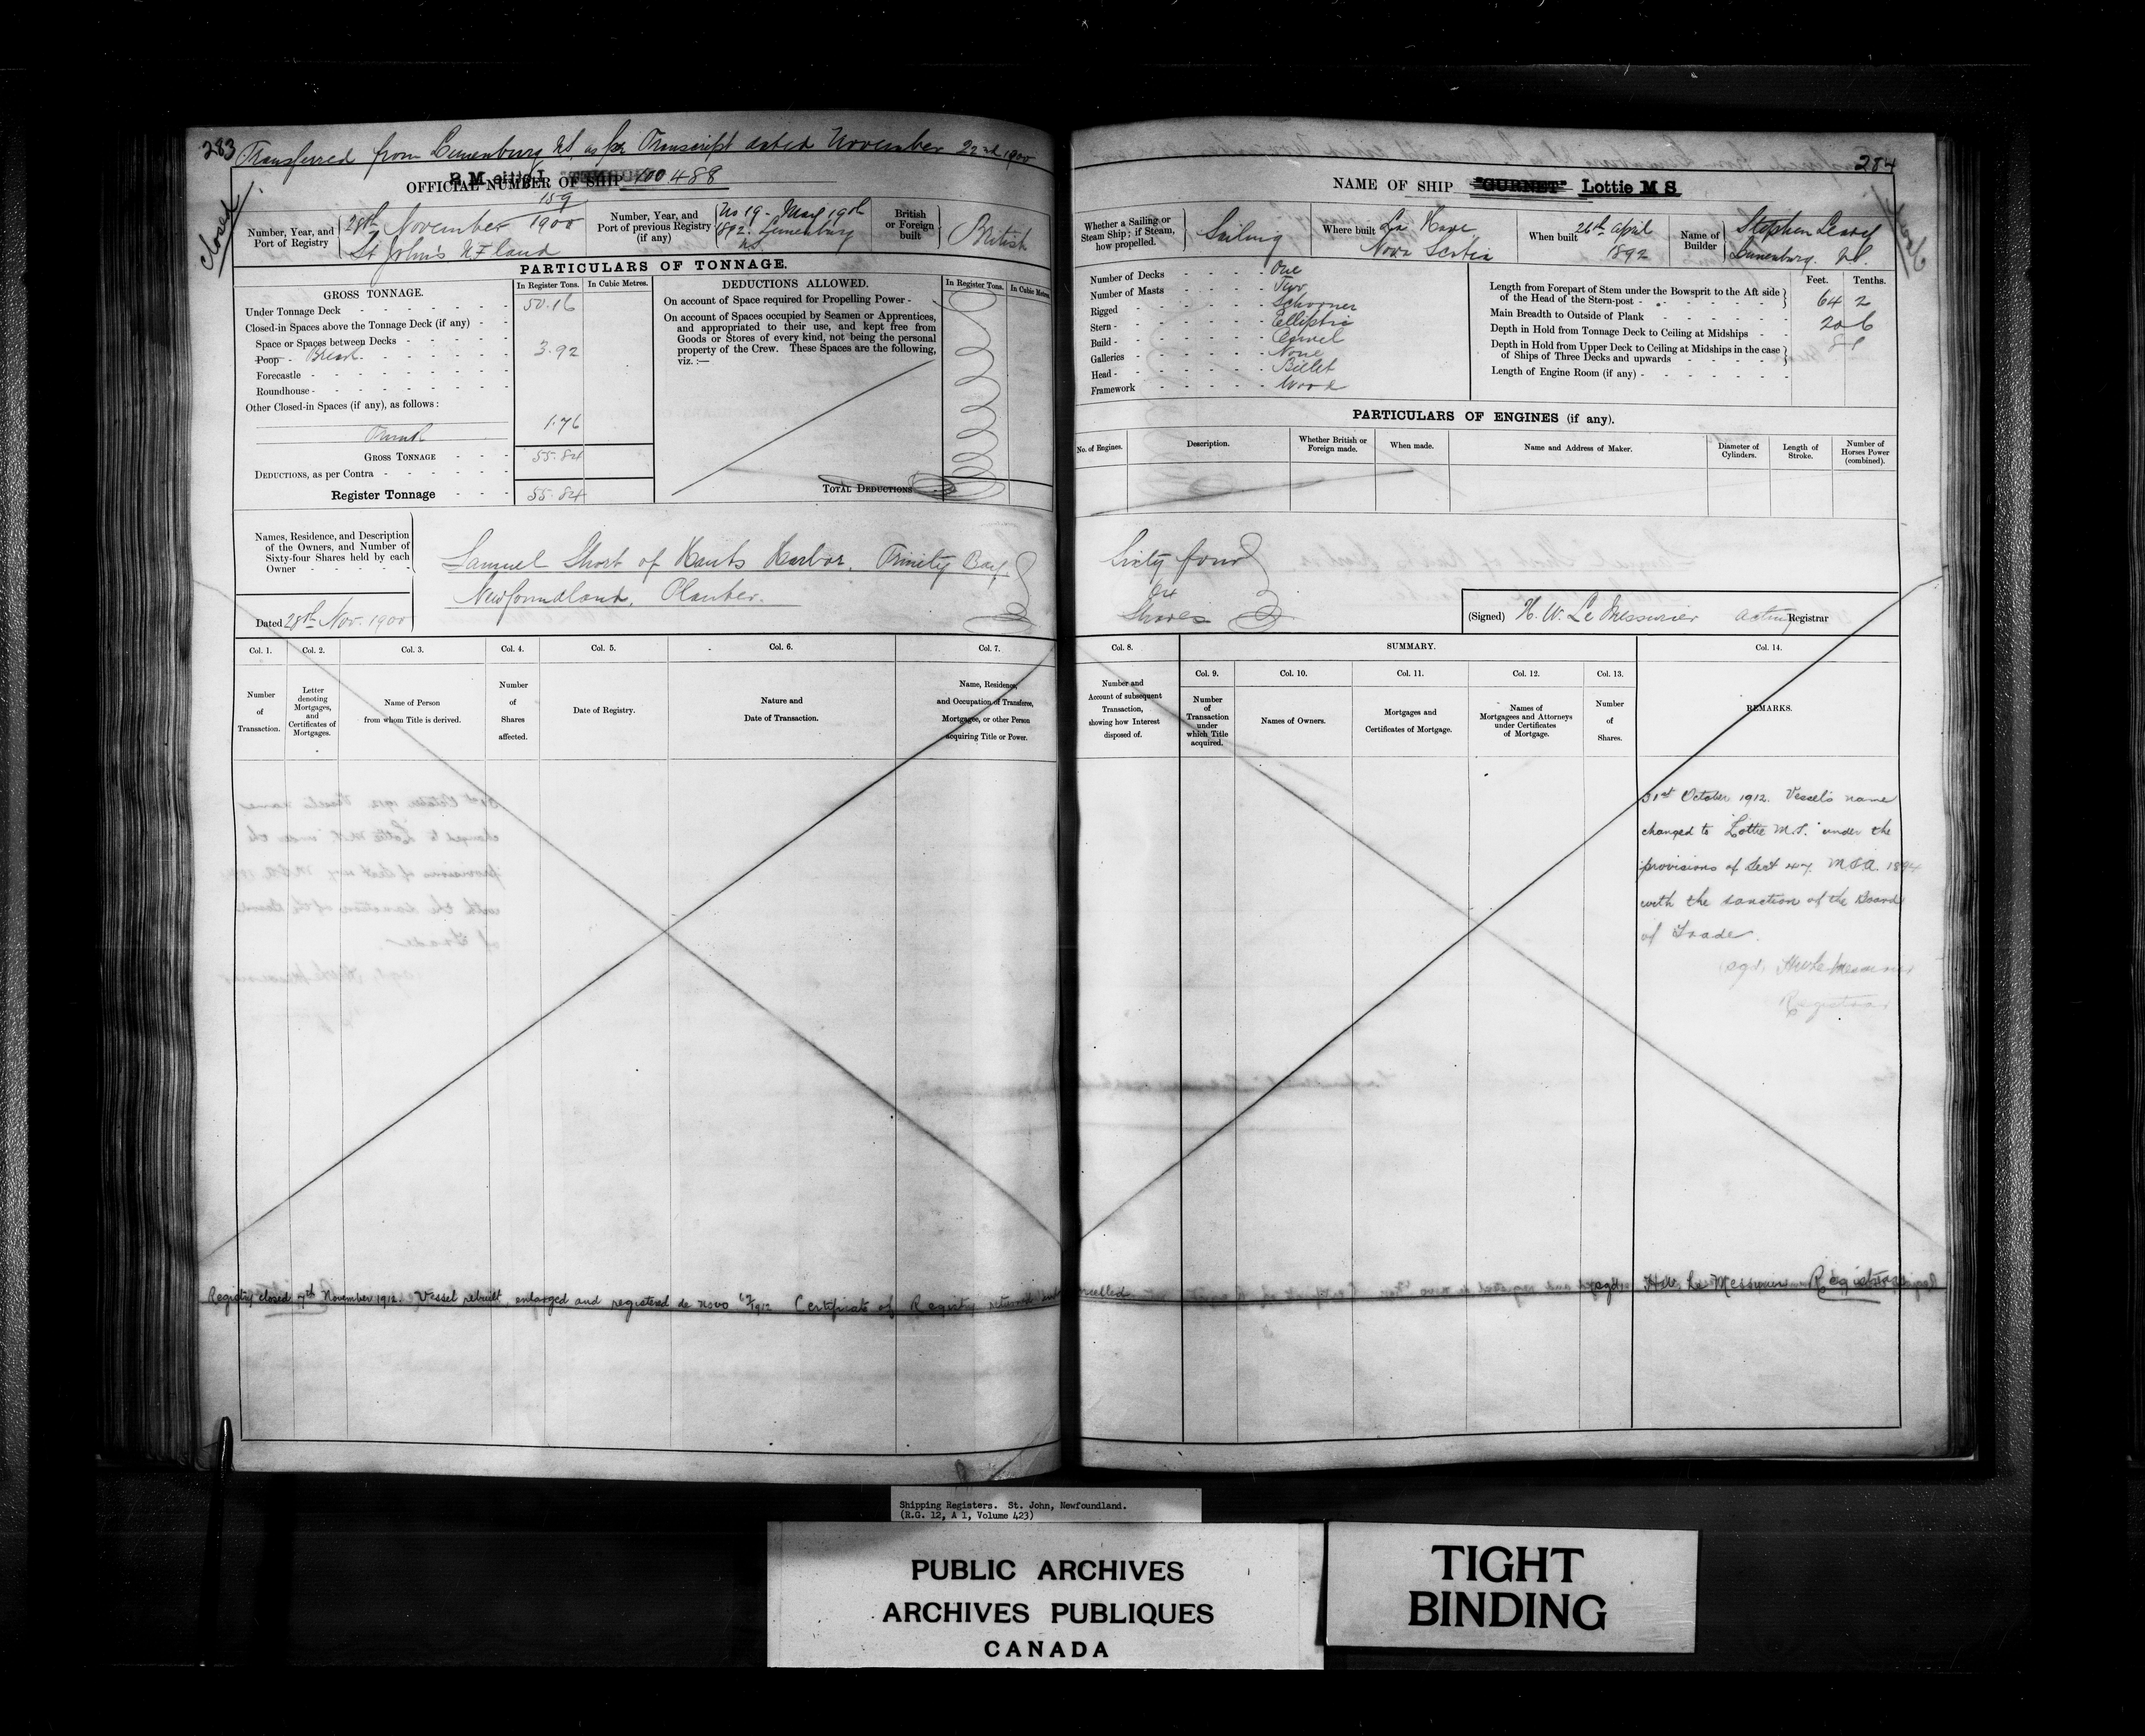 283
Transferred from Lunenburg N.S. as per Transcript dated November 22nd 1900
closed
OFFICIAL NUMBER OF SHIP 100.488
Number, Year, and Port of Registry
159
28th November 1900
St John's N.F. land
Number, Year, and Port of previous Registry (if any)
No 19 - May 19th
1892. Lunenburg
NS
British or Foreign built
British
PARTICULARS OF TONNAGE.
GROSS TONNAGE.
In Register Tons.
In Cubic Metres.
Under Tonnage Deck 50.16
Closed-in Spaces above the Tonnage Deck (if any)
Space or Spaces between Decks
Poop Break 3.92
Forecastle
Roundhouse
Other Closed-in Spaces (if any), as follows:
Trunk 1.76
GROSS TONNAGE 55.84
DEDUCTIONS, as per Contra
Register Tonnage 55.84
DEDUCTIONS ALLOWED.
In Register Tons.
In Cubic Metres.
On account of Space required for Propelling Power
On account of Spaces occupied by Seamen or Apprentices,
and appropriated to their use, and kept free from
Goods or Stores of every kind, not being the personal
property of the Crew. These Spaces are the following,
viz.:—
TOTAL DEDUCTIONS
Names, Residence, and Description
of the Owners, and Number of
Sixty-four Shares held by each
Owner
Samuel Short of Hants Harbor, Trinity Bay
Newfoundland, Planter.
Dated 28th Nov. 1900
Col. 1.
Number of Transaction.
Col. 2.
Letter denoting Mortgages, and Certificates of Mortgages.
Col. 3.
Name of Person from whom Title is derived.
Col. 4.
Number of Shares affected.
Col. 5.
Date of Registry.
Col. 6.
Nature and Date of Transaction.
Col. 7.
Name, Residence, and Occupation of Transferee, Mortgagee, or other Person acquiring Title or Power.
284
NAME OF SHIP "GURNET" Lottie M S
Whether a Sailing or Steam Ship; if Steam, how propelled.
Sailing
Where built La Have, Nova Scotia
When built 26th April 1892
Name of Builder
Stephen
Lunenburg. N.S.
Number of Decks One
Number of Masts Two
Rigged Schooner
Stern Elliptic
Build Carvel
Galleries None
Head Billet
Framework Wood
Feet.
Tenths.
Length from Forepart of Stem under the Bowsprit to the Aft side
of the Head of the Stern-post 64 2
Main Breadth to Outside of Plank 20 6
Depth in Hold from Tonnage Deck to Ceiling at Midships
Depth in Hold from Upper Deck to Ceiling at Midships in the case
of Ships of Three Decks and upwards
Length of Engine Room (if any)
PARTICULARS OF ENGINES (if any).
No. of Engines.
Description.
Whether British or Foreign made.
When made.
Name and Address of Maker.
Diameter of Cylinders.
Length of Stroke.
Number of Horses Power (combined).
Sixty four
64
Shares
(Signed) H. W. Le Messurier Acting Registrar
Col. 8.
Number and Account of subsequent Transaction, showing how Interest disposed of.
SUMMARY.
Col. 9.
Number of Transaction under which Title acquired.
Col. 10.
Names of Owners.
Col. 11.
Mortgages and Certificates of Mortgage.
Col. 12.
Names of Mortgagees and Attorneys under Certificates of Mortgage.
Col. 13.
Number of Shares.
Col. 14.
REMARKS.
31st October 1912. Vessel's name
changed to "Lottie M.S." under the
provisions of Sect 47 M.S.A. 1894
with the sanction of the Board
of Trade.
(sgd) HW Le Messurier
Registrar
Registry closed 7th November 1912. Vessel rebuilt enlarged and registered de novo Certificate of Registry returned and cancelled (sgd) H.W. Le Messurier Registrar
Shipping Registers. St. John, Newfoundland.
(R.G. 12, A 1, Volume 423)
PUBLIC ARCHIVES
ARCHIVES PUBLIQUES
CANADA
TIGHT
BINDING